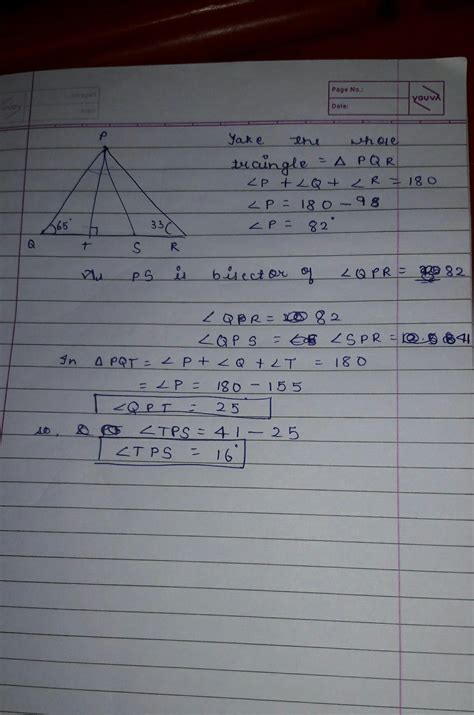 Page No.:
Date:
YOUVA
P
65°
33
Q
T
S
R
Take the whole
traingle = Δ PQR
∠P + ∠Q + ∠R = 180
∠P = 180 - 98
∠P = 82°
As PS is bisector of ∠QPR = 82
∠QPR = 82
∠QPS = ∠SPR = 41
In Δ PQT = ∠P + ∠Q + ∠T = 180
= ∠P = 180 - 155
∠QPT = 25°
so, ∠TPS = 41 - 25
∠TPS = 16°